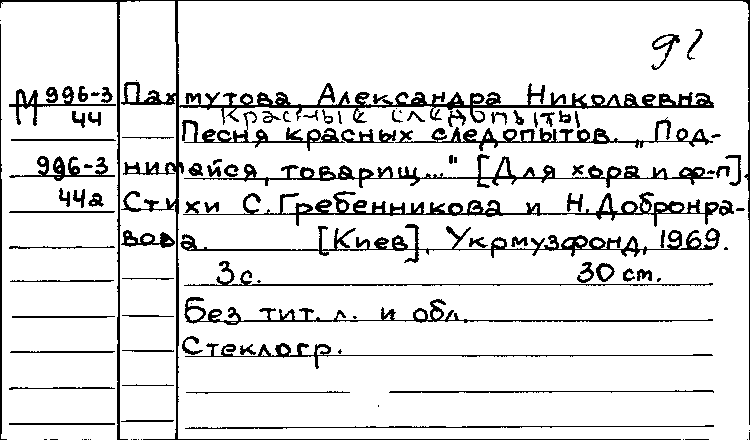 92
М 996-3 Пахмутова, Александра Николаевна
44 Красные следопыты
Песня красных следопытов. „Под-
996-3 нимайся, товарищ..." [Для хора и ф-п].
44а Стихи С. Гребенникова и Н. Добронра-
вова. [Киев], Укрмузфонд, 1969.
3 с. 30 см.
Без тит. л. и обл.
Стеклогр.